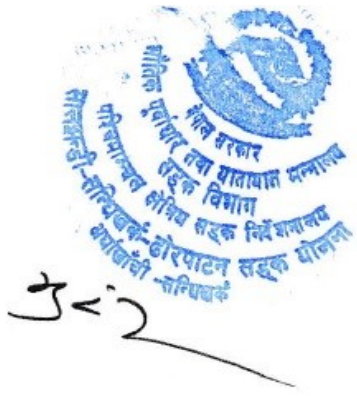 नेपाल सरकार
भौतिक पूर्वाधार तथा यातायात मन्त्रालय
सडक विभाग
पश्चिमाञ्चल क्षेत्रिय सडक निर्देशनालय
सालझण्डी-सन्धिखर्क-ढोरपाटन सडक योजना
अर्घाखाँची -सन्धिखर्क